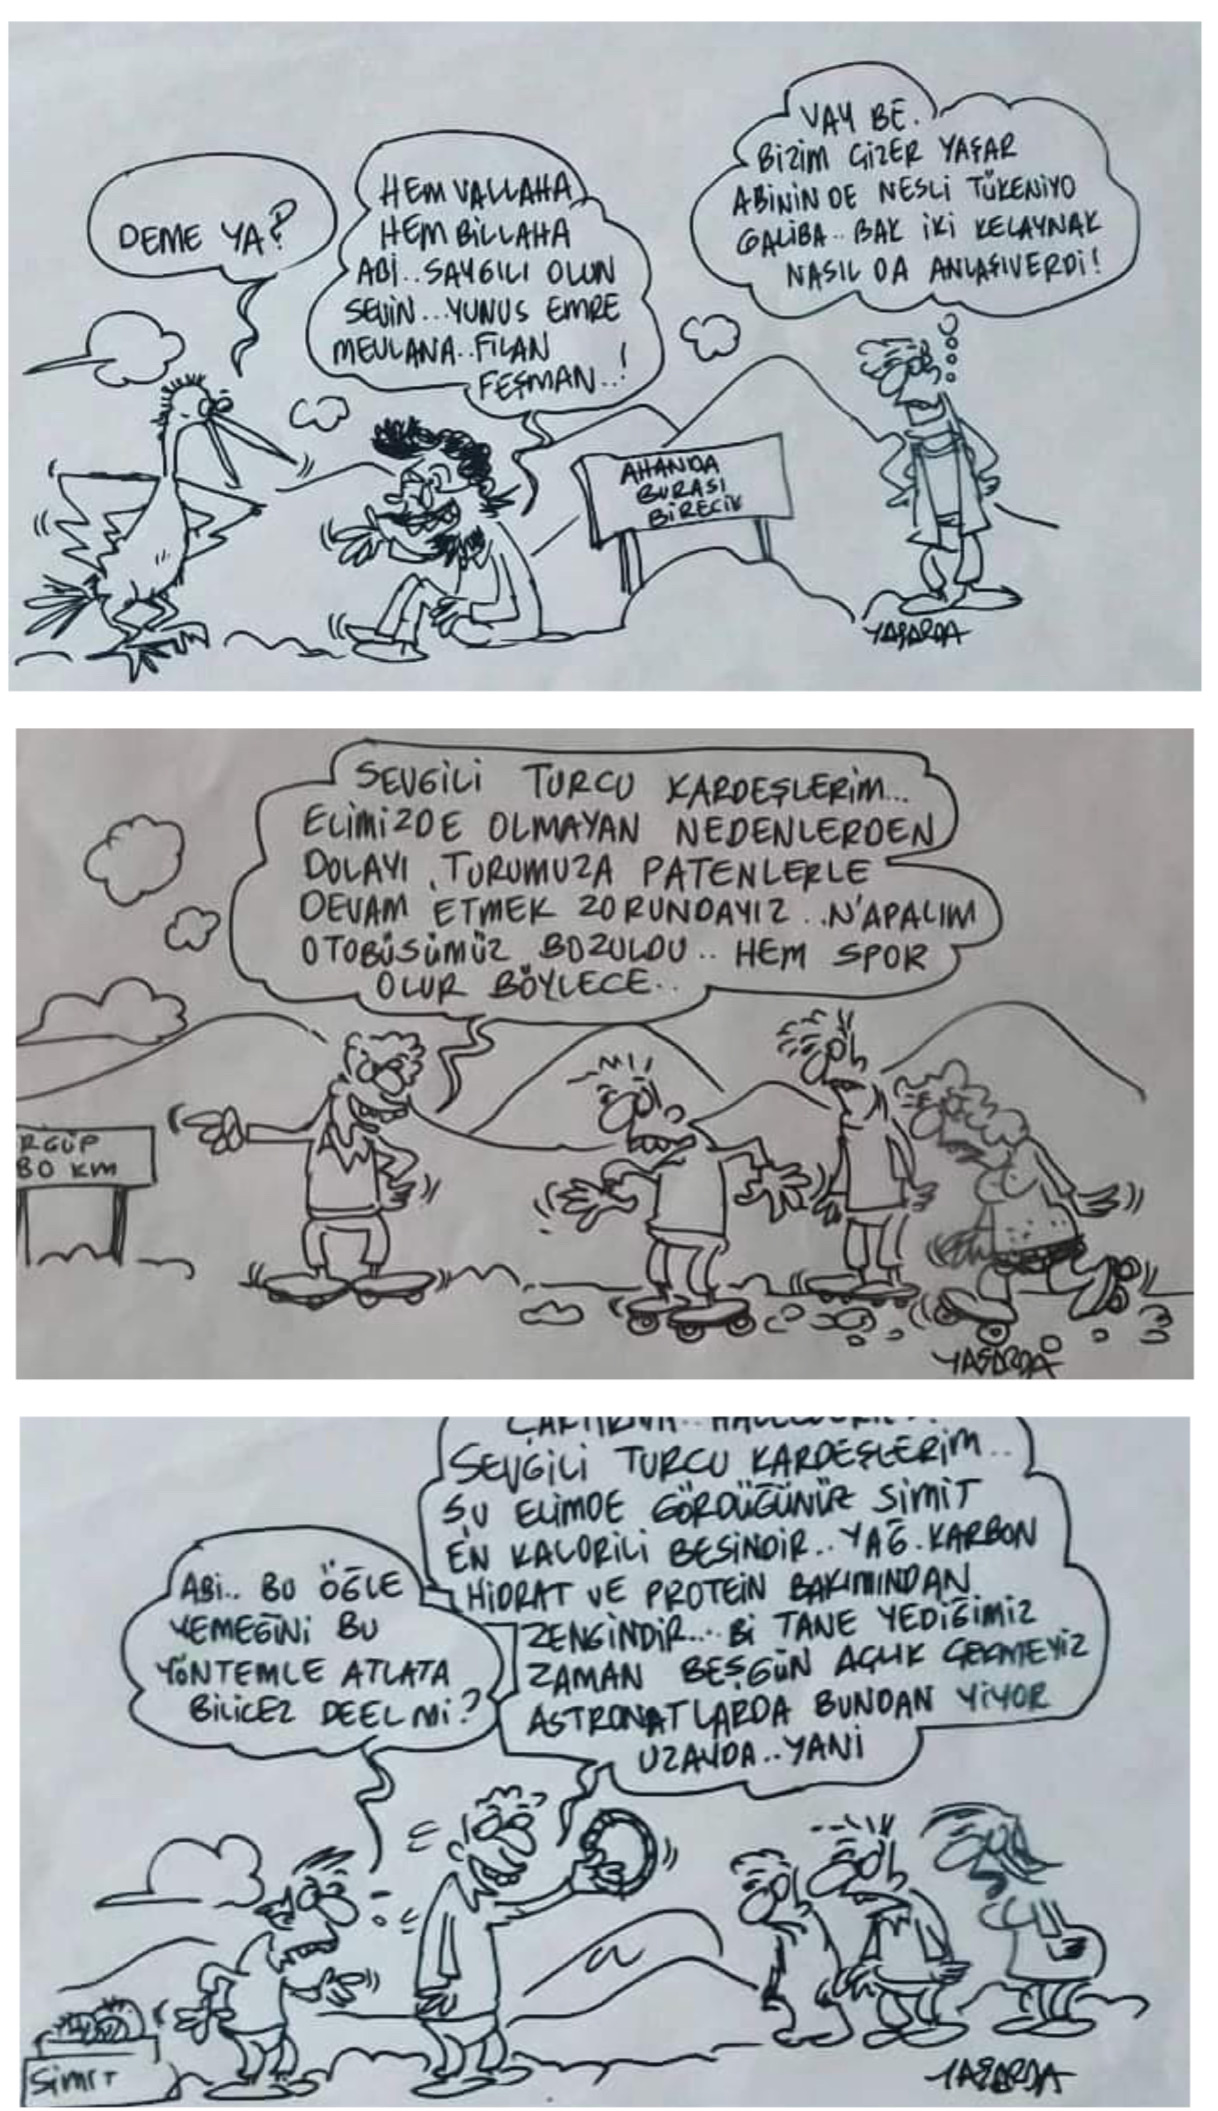 DEME YA?
HEM VALLAHA
HEM BİLLAHA
ABİ.. SAYGILI OLUN
SEVİN... YUNUS EMRE
MEVLANA.. FİLAN
FEŞMAN..!
VAY BE.
BİZİM GİZER YAŞAR
ABİNİN DE NESLİ TÜKENİYO
GALİBA.. BAK İKİ KELAYNAK
NASIL DA ANLAŞIVERDİ!
AHANDA
BURASI
BİRECİK
YAŞARDA
SEVGİLİ TURCU KARDEŞLERİM...
ELİMİZDE OLMAYAN NEDENLERDEN
DOLAYI, TURUMUZA PATENLERLE
DEVAM ETMEK ZORUNDAYIZ... N'APALIM
OTOBÜSÜMÜZ BOZULDU.. HEM SPOR
OLUR BÖYLECE..
RGÜP
80 KM
YAŞARDA
SEVGİLİ TURCU KARDEŞLERİM..
ŞU ELİMDE GÖRDÜĞÜNÜZ SİMİT
EN KALORİLİ BESİNDİR.. YAĞ. KARBON
HİDRAT VE PROTEİN BAKIMINDAN
ZENGİNDİR... Bİ TANE YEDİĞİMİZ
ZAMAN BEŞGÜN AÇLIK ÇEKMEYİZ
ASTRONATLARDA BUNDAN YİYOR
UZAYDA.. YANİ
ABİ.. BU ÖĞLE
YEMEĞİNİ BU
YÖNTEMLE ATLATA
BİLİCEZ DEEL Mİ?
SİMİT
YAŞARDA